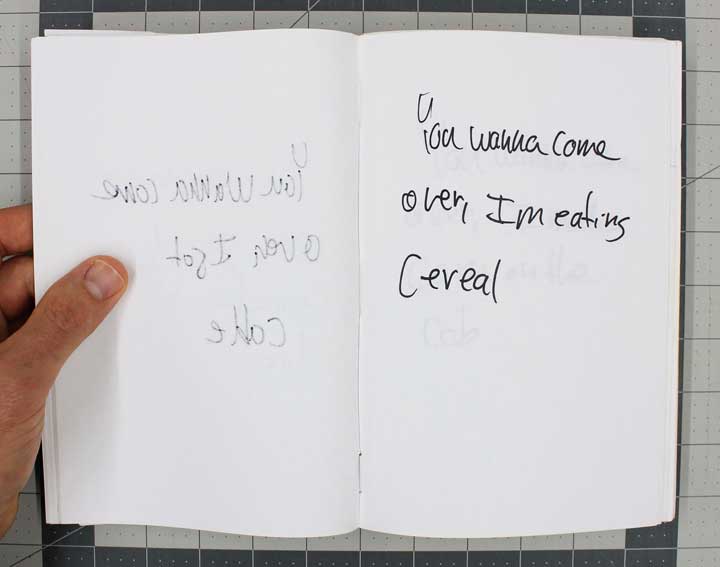 You wanna come
over, I got
You wanna come
over, Im eating
Cereal